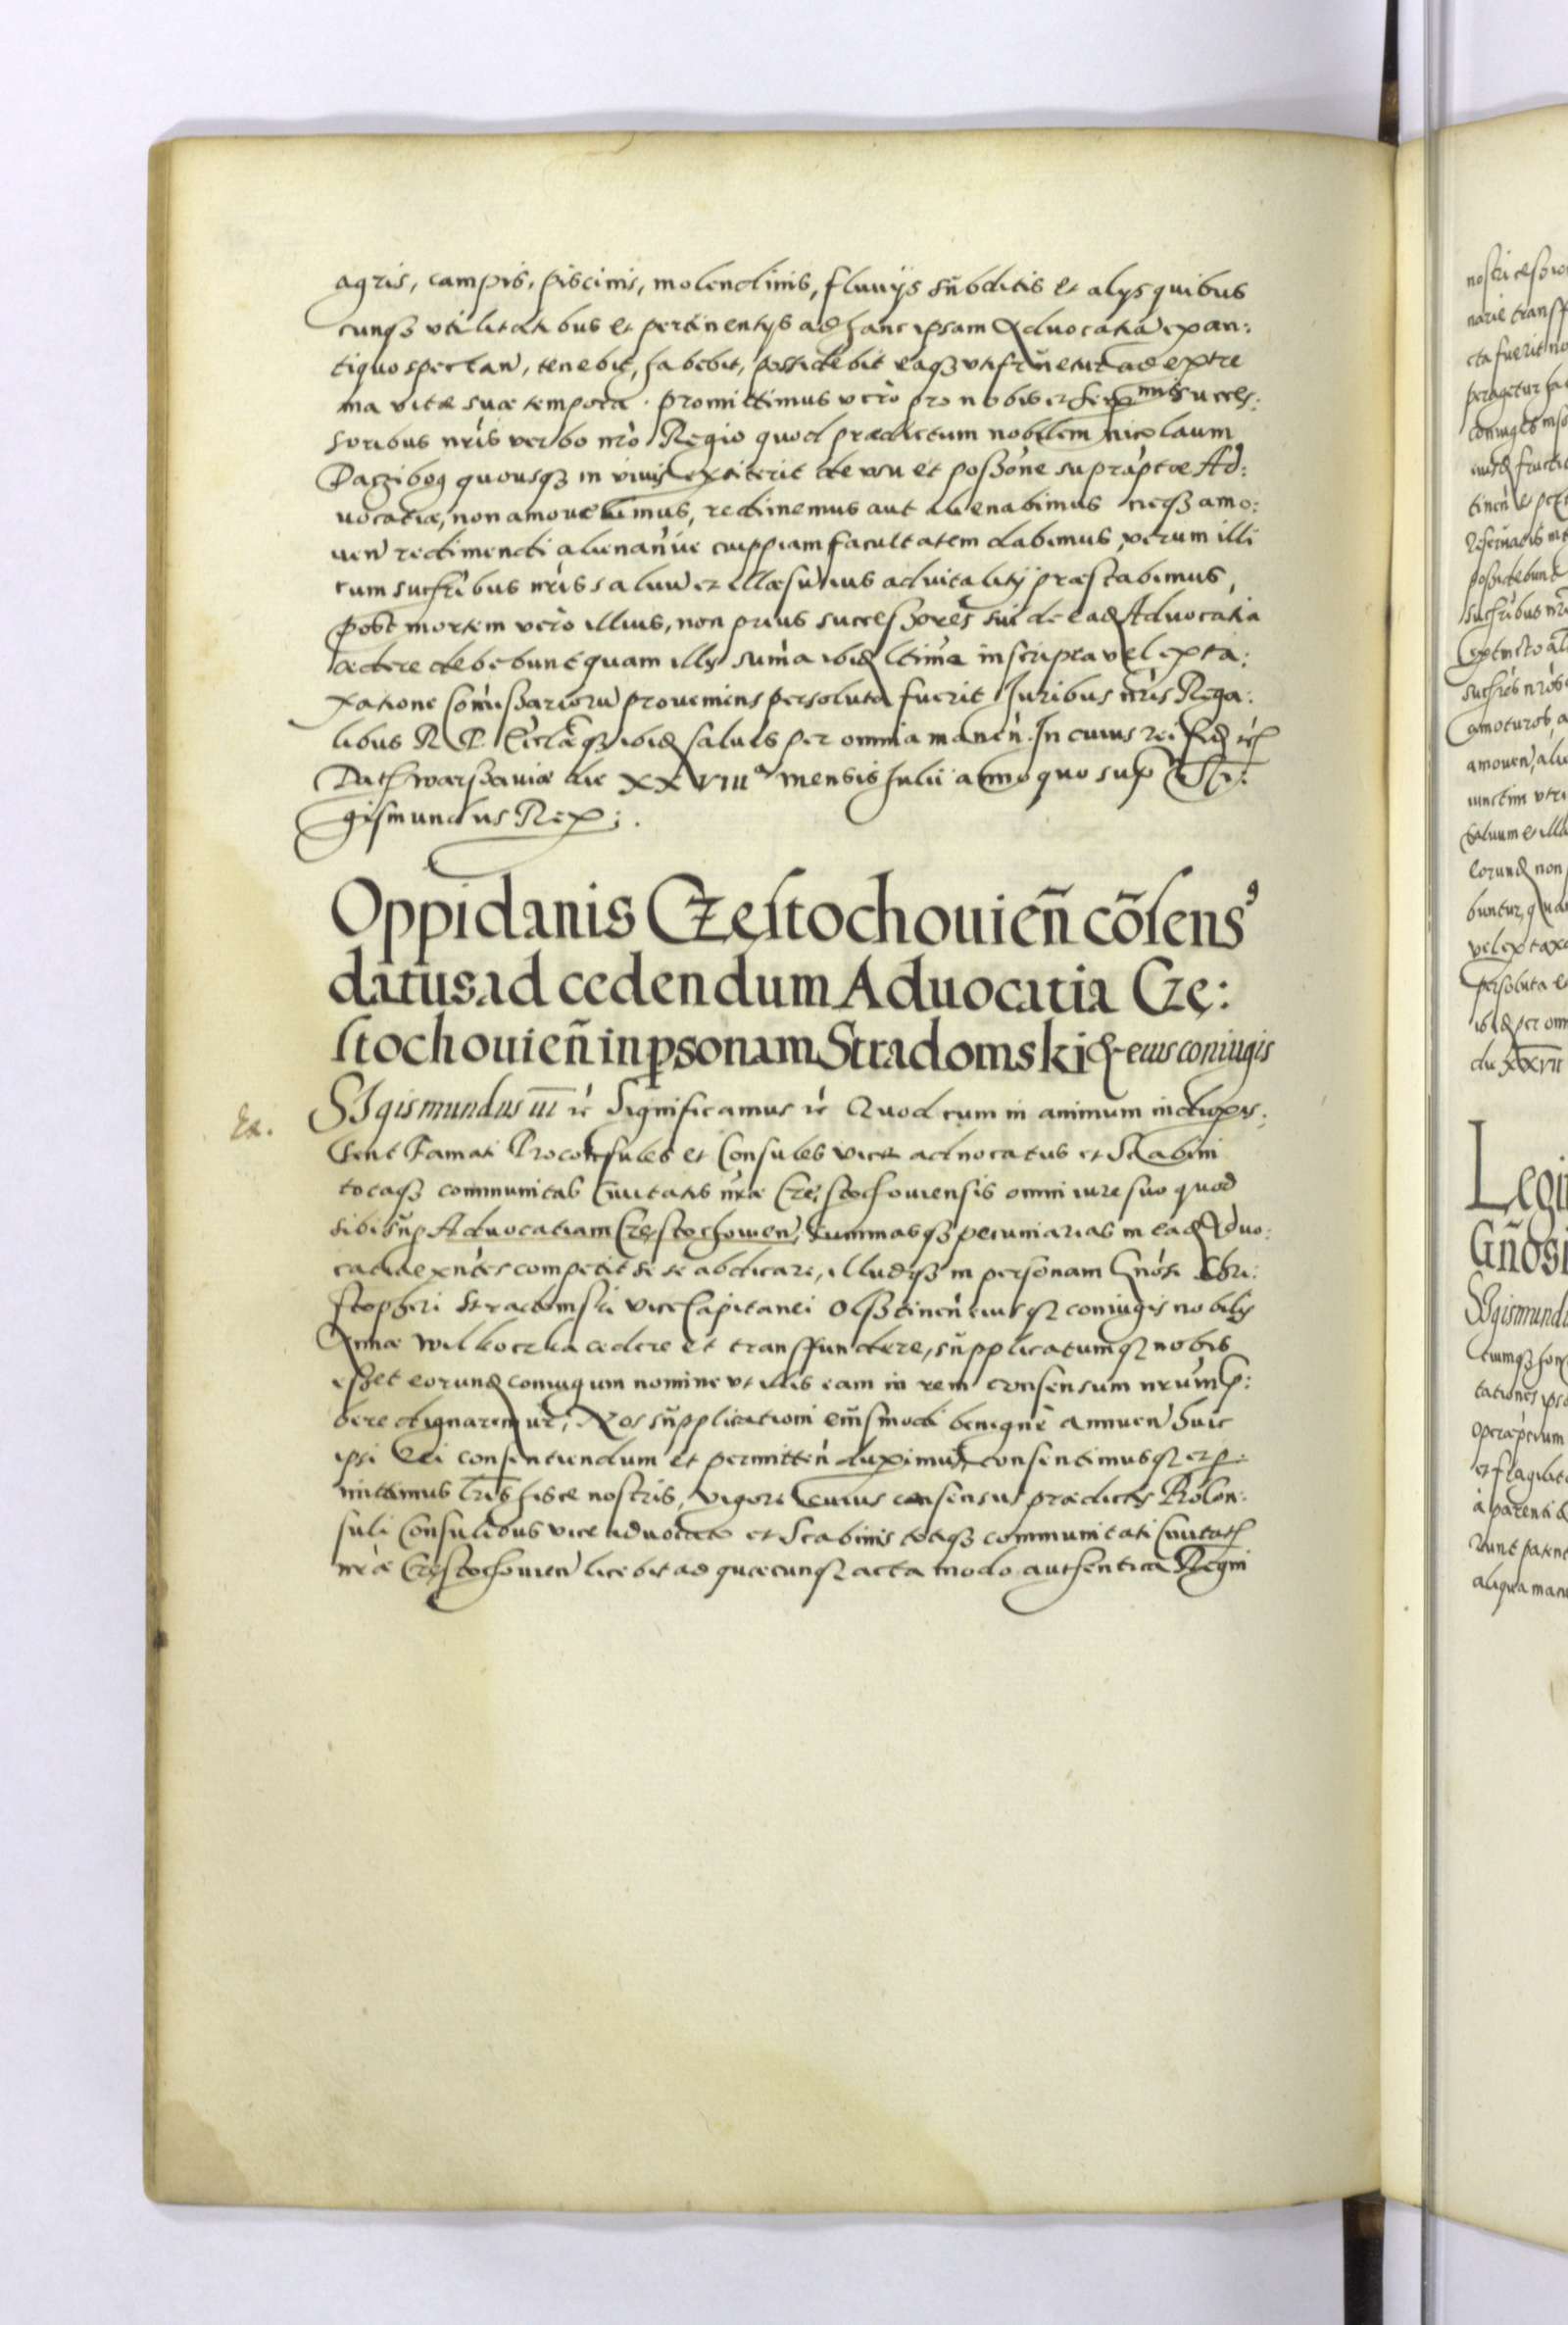 agris, campis, piscinis, molendinis, fluuijs sũbditis et alijs quibus
cunqȝ vtilitatibus et pertinentijs ad hanc ipsam Aduocatiã ex an:
tiquo spectan̄, tenebit, habebit, possidebit eaqȝ vtifrũetur ad extre
ma vitæ suæ tempora. promittimus verò pro nobis et Ser̃mis succes:
soribus nr̃is verbo nr̃o Regio quod prædictum nobilem nicolaum
Daczibog quousqȝ in viuis extiterit de vsu et possõne suprãptæ Ad:
uocatiæ, non amouebimus, redimemus aut alienabimus neqȝ amo:
uen̄ redimendi alienan̄ue cuippiam facultatem dabimus, verum illi
cum sucr̃ibus nr̃is saluũ et illæsũ ius aduitalitij præstabimus,
post mortem verò illius, non prius successores sui de ead Aduocatia
cedere debebunt quam illis sum̃a ibid ltim̃e inscripta vel ex ta:
xatione Com̃issariorũ proueniens persoluta fuerit Iuribus nr̃is Rega:
libus R. P. Eccl̃æqȝ ibid saluis per omnia manen̄. In cuius rei fid etc̃
Dat̃ warssauiæ die XXVIIIa mensis Iulii anno quo sup̃ Si:
gismundus Rex;.
Oppidanis Częstochouien̄ cõsens9
datus ad cedendum Aduocatia Czę:
stochouien̄ in p̱sonam Stradomski & eius coniugis
Ex.
SIgismundus III etc̃ Significamus etc̃ Quod cum in animum induxis:
sent Famati Proconsules et Consules vice aduocatus et Scabini
totaqȝ communitas Ciuitatis nr̃æ Częstochouiensis omni iure suo quod
sibi sũp Aduocatiam Częstochouien̄, summasqȝ pecuniarias in ead Aduo:
catia exñtes competit se se abdicare, illudqȝ in personam Gñosi Chri:
stopheri Stradomski viceCapitanei Olsstinen̄ eiusqȝ coniugis nobilis
Annæ Wilkoczka cedere et transfundere, sũpplicatumqȝ nobis
esset eorund coniugum nomine vt illis eam in rem consensum nr̃um p̱:
bere dignaremur, Nos sũpplicationi eiũsmodi benignè annuen̄ huic
ipsi Rei consentiendum et permitten̄ duximus, consentimusqȝ et p̱:
mittimus lr̃is hisce nostris, vigore cuius consensus prædictis Procon:
suli Consulibus vice aduocato et Scabinis totiqȝ communitati Ciuitat̃
nr̃æ Częstochouien̄ licebit ad quæcunqȝ acta modo authentica Regni